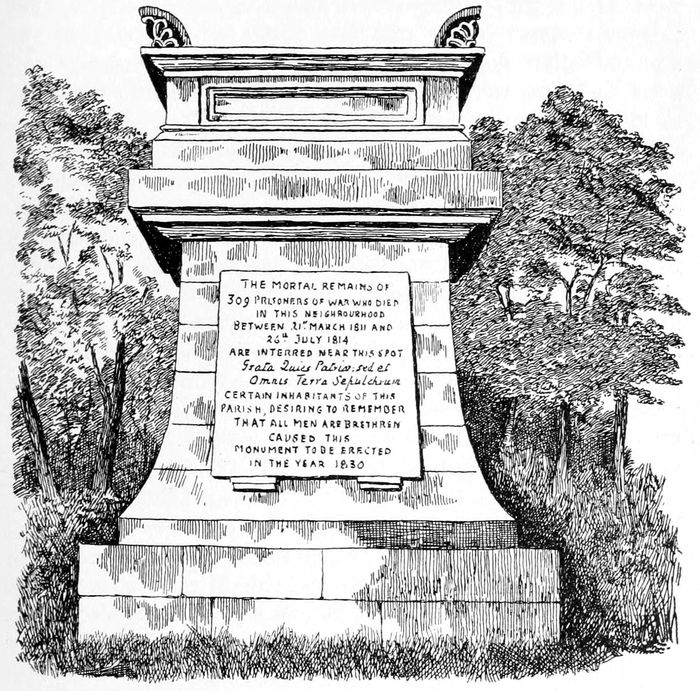 THE MORTAL REMAINS OF
309 PRISONERS OF WAR WHO DIED
IN THIS NEIGHBOURHOOD
BETWEEN 21ST MARCH 1811 AND
26TH JULY 1814
ARE INTERRED NEAR THIS SPOT
Grata Quies Patriæ; sed et
Omnis Terra Sepulchrum
CERTAIN INHABITANTS OF THIS
PARISH, DESIRING TO REMEMBER
THAT ALL MEN ARE BRETHREN
CAUSED THIS
MONUMENT TO BE ERECTED
IN THE YEAR 1830